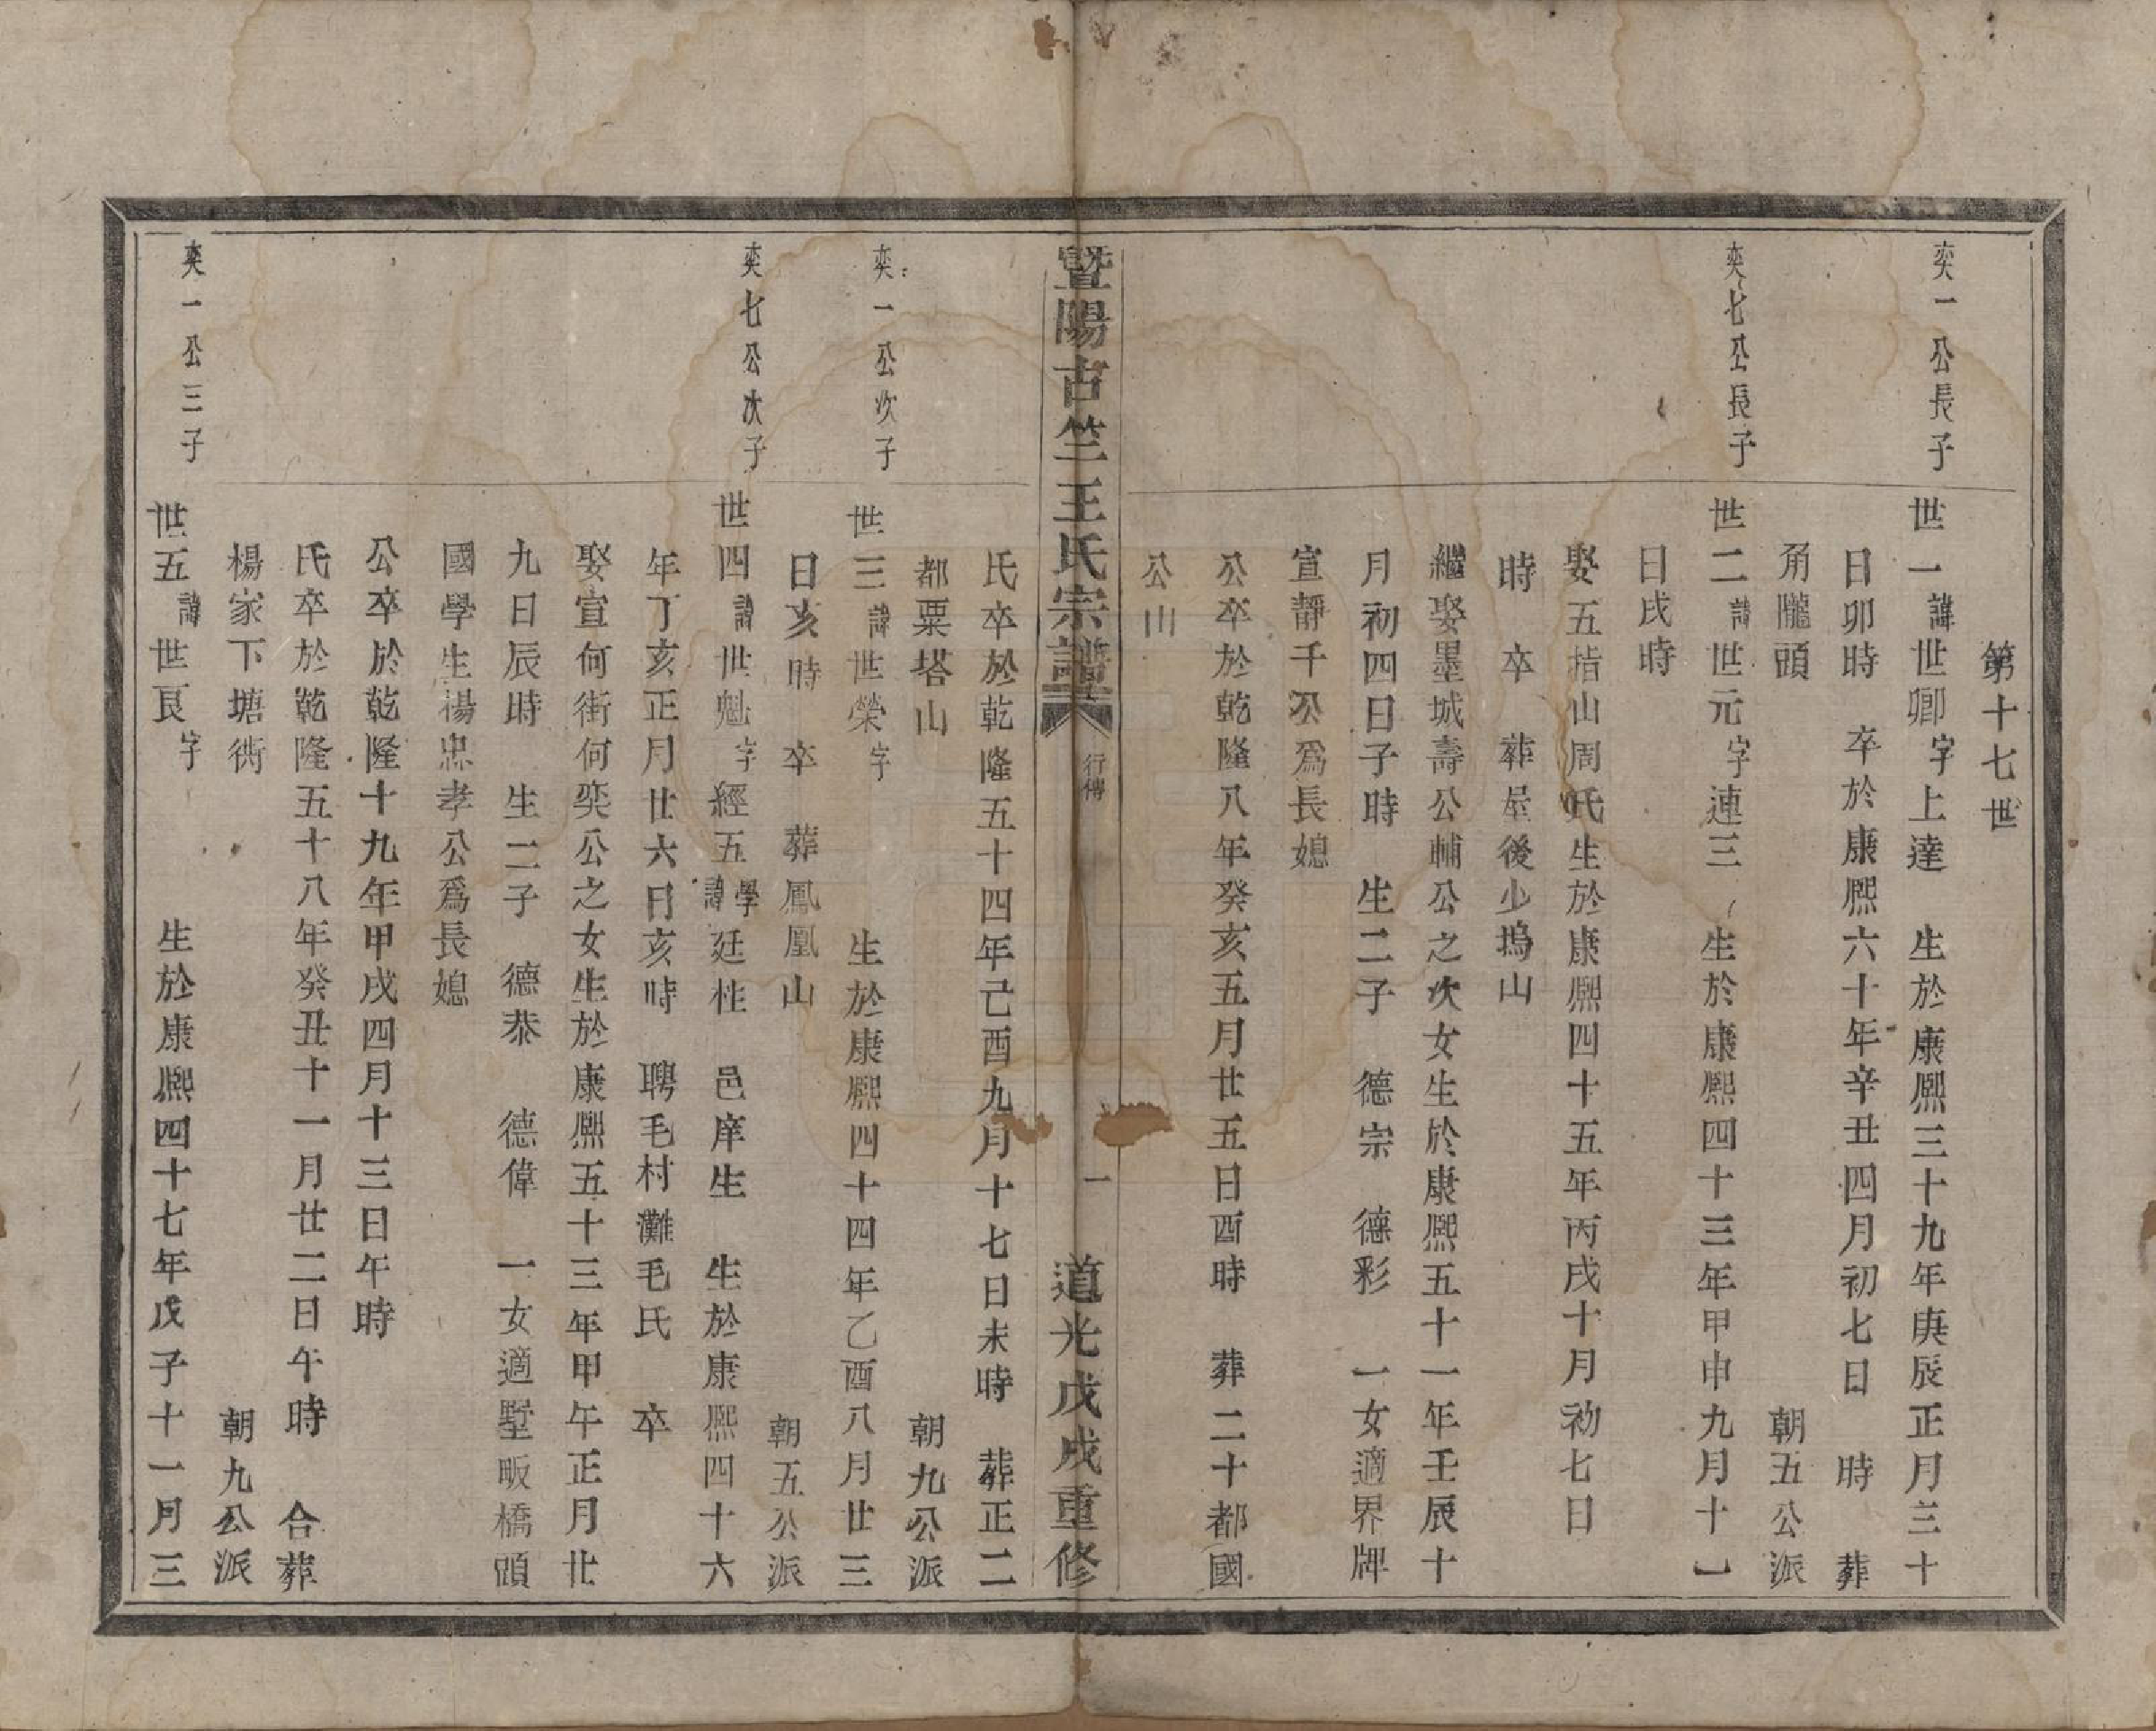 第十七世
奕一公長子
世一諱世卿字上達 生於康熙三十九年庚辰正月三十
日卯時 卒於康熙六十年辛丑四月初七日 時 葬
角隴頭 朝五公派
奕七公長子
世二諱世元字連三 生於康熙四十三年甲申九月十一
日戌時
娶五指山周氏生於康熙四十五年丙戌十月初七日
時 卒 葬屋後少塢山
繼娶墨城壽公輔公之次女生於康熙五十一年壬辰十
月初四日子時 生二子 德宗 德彩 一女適界牌
宣靜千公爲長媳
公卒於乾隆八年癸亥五月廿五日酉時 葬二十都國
公山
暨陽古竺王氏宗譜 行傳 一 道光戊戌重修
氏卒於乾隆五十四年己酉九月十七日未時 葬正二
都粟塔山 朝九公派
奕一公次子
世三諱世榮字 生於康熙四十四年乙酉八月廿三
日亥時 卒 葬鳳凰山 朝五公派
奕七公次子
世四諱世魁字經五學諱廷桂 邑庠生 生於康熙四十六
年丁亥正月廿六日亥時 聘毛村灘毛氏 卒
娶宣何街何奕公之女生於康熙五十三年甲午正月廿
九日辰時 生二子 德恭 德偉 一女適墅畈橋頭
國學生楊忠孝公爲長媳
公卒於乾隆十九年甲戌四月十三日午時
氏卒於乾隆五十八年癸丑十一月廿二日午時 合葬
楊家下塘衖 朝九公派
奕一公三子
世五諱世良字 生於康熙四十七年戊子十一月三